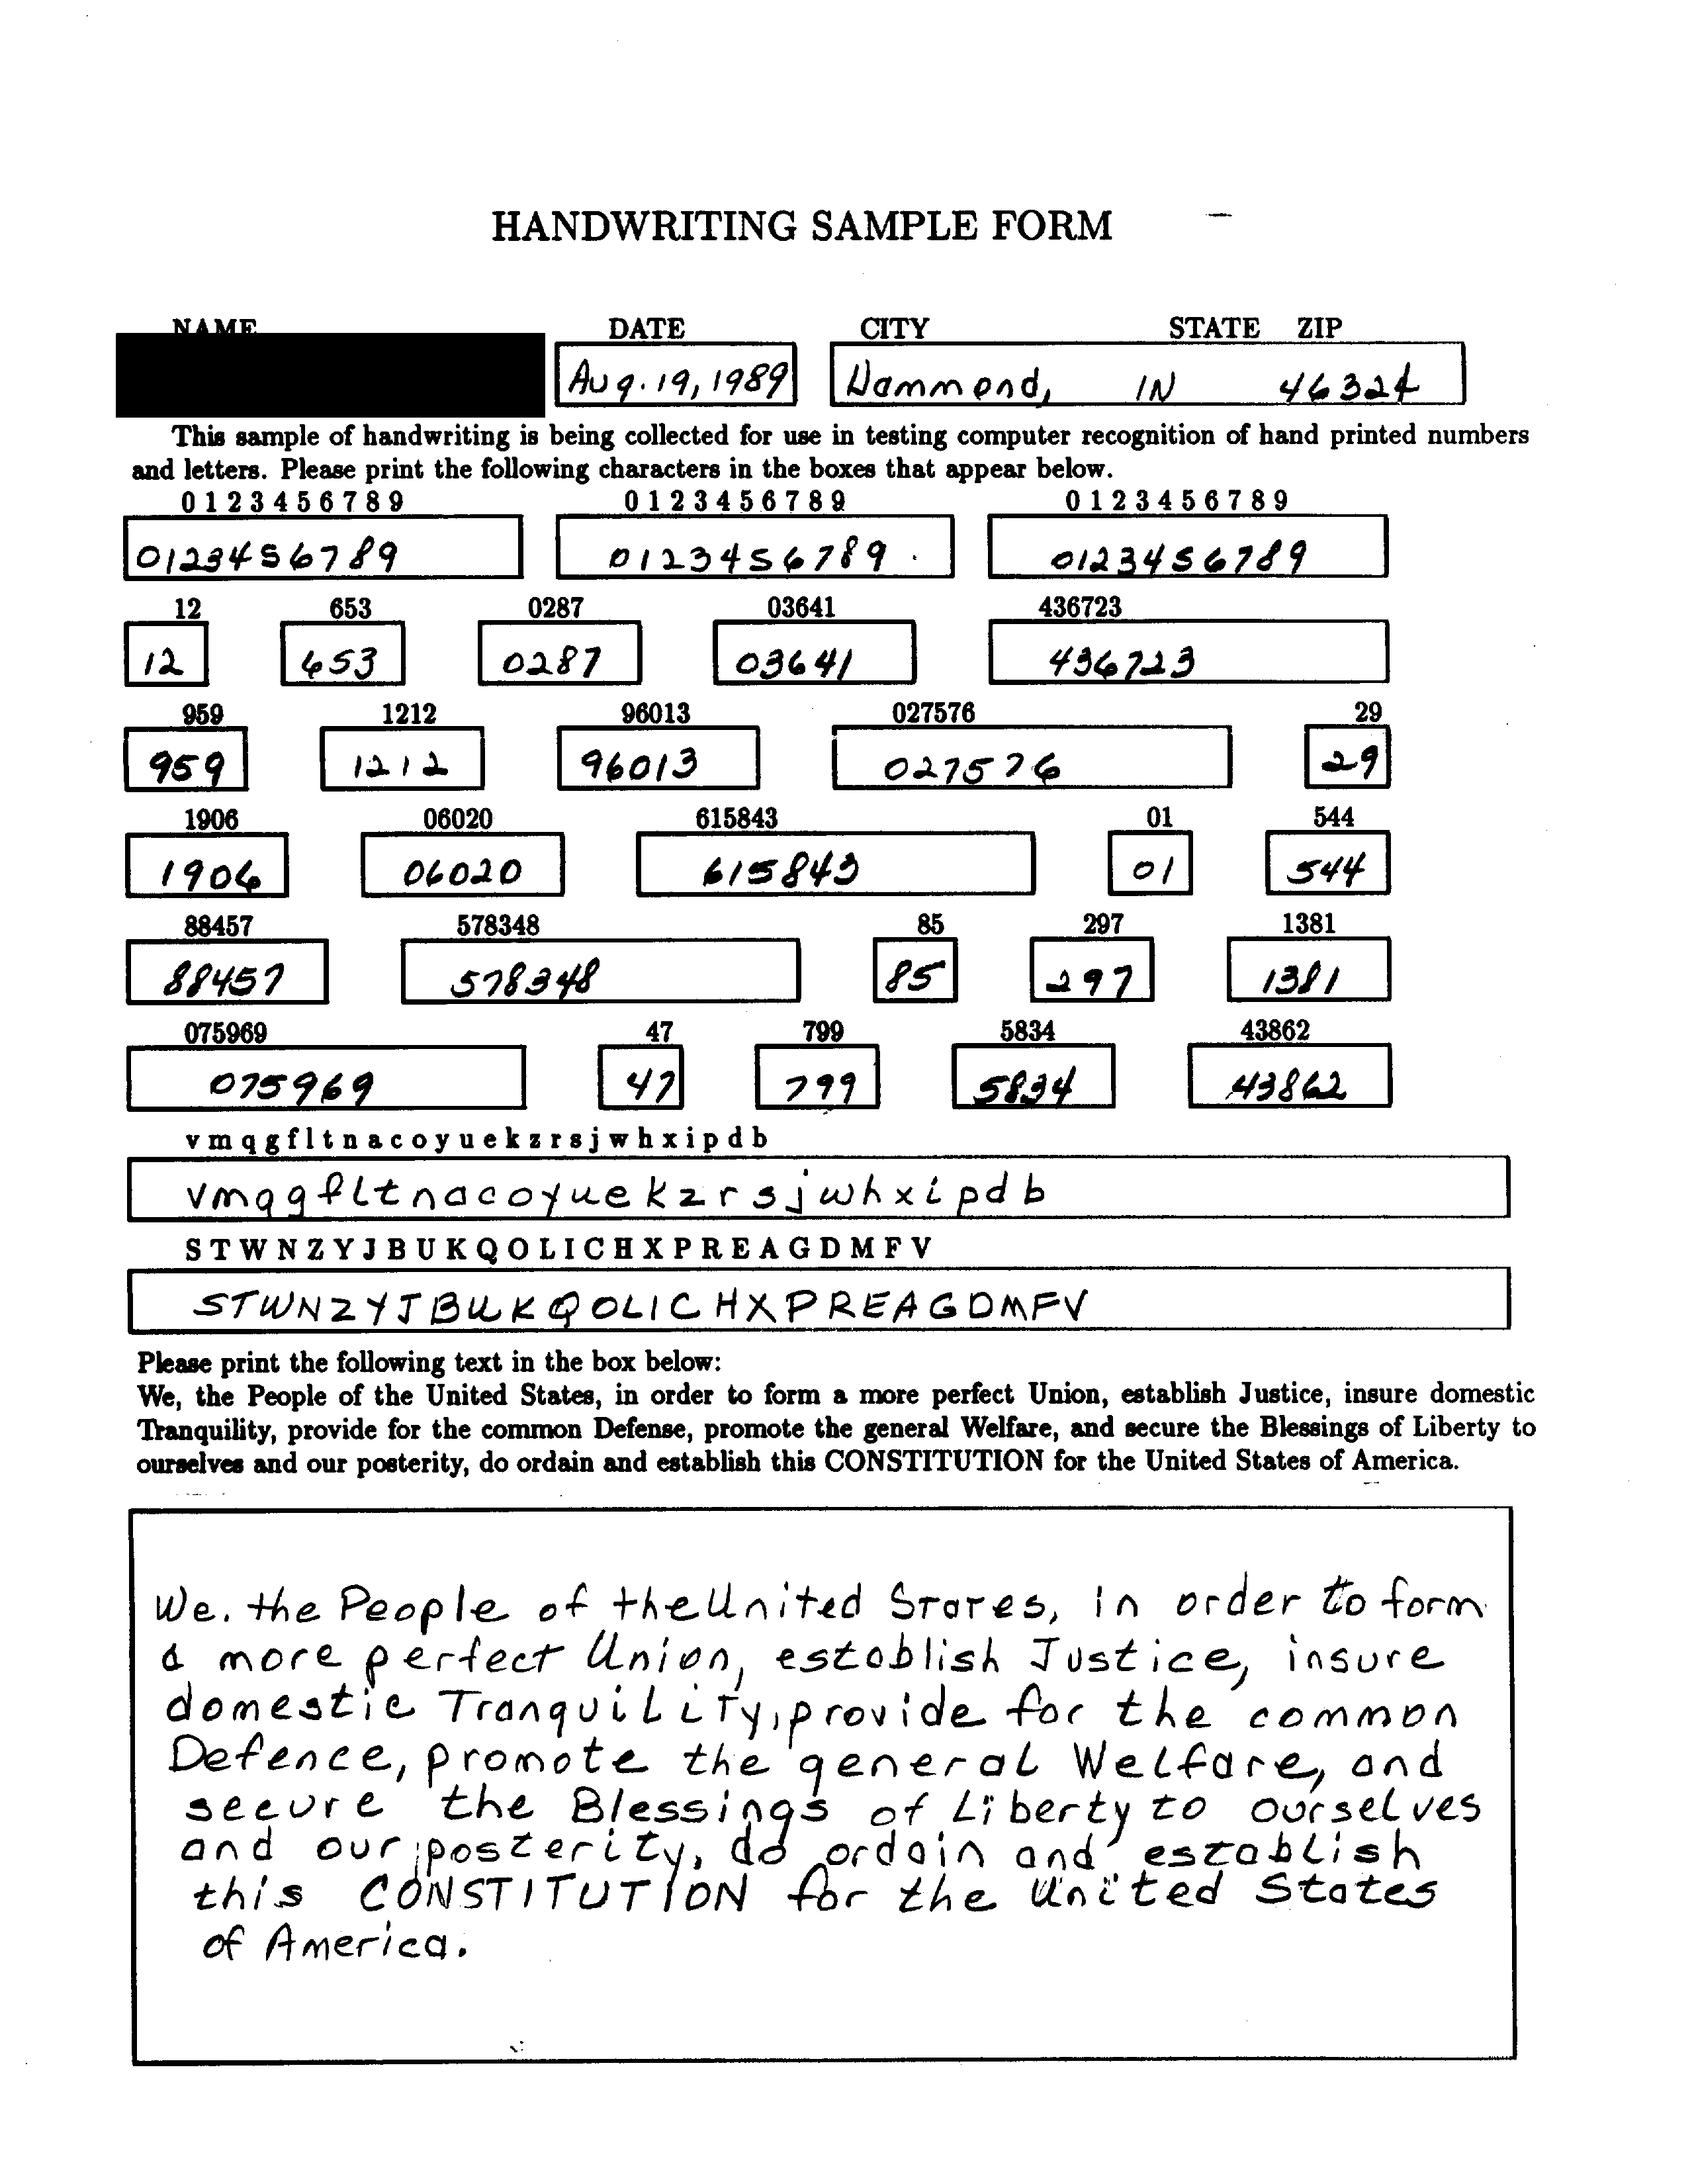 HANDWRITING SAMPLE FORM
NAME DATE CITY STATE ZIP
Aug. 19, 1989 Hammond, IN 46324
This sample of handwriting is being collected for use in testing computer recognition of hand printed numbers
and letters. Please print the following characters in the boxes that appear below.
0 1 2 3 4 5 6 7 8 9 0 1 2 3 4 5 6 7 8 9 0 1 2 3 4 5 6 7 8 9
0123456789 0123456789 0123456789
12 653 0287 03641 436723
12 653 0287 03641 436723
959 1212 96013 027576 29
959 1212 96013 027576 29
1906 06020 615843 01 544
1906 06020 615843 01 544
88457 578348 85 297 1381
88457 578348 85 297 1381
075969 47 799 5834 43862
075969 47 799 5834 43862
v m q g f l t n a c o y u e k z r s j w h x i p d b
vmqgfltnacoyuekzrsjwhxipdb
S T W N Z Y J B U K Q O L I C H X P R E A G D M F V
STWNZYJBUKQOLICHXPREAGDMFV
Please print the following text in the box below:
We, the People of the United States, in order to form a more perfect Union, establish Justice, insure domestic
Tranquility, provide for the common Defense, promote the general Welfare, and secure the Blessings of Liberty to
ourselves and our posterity, do ordain and establish this CONSTITUTION for the United States of America.
We. the People of the United States, in order to form
a more perfect Union, establish Justice, insure
domestic Tranquility, provide for the common
Defence, promote the general Welfare, and
secure the Blessings of Liberty to ourselves
and our posterity, do ordain and establish
this CONSTITUTION for the United States
of America.